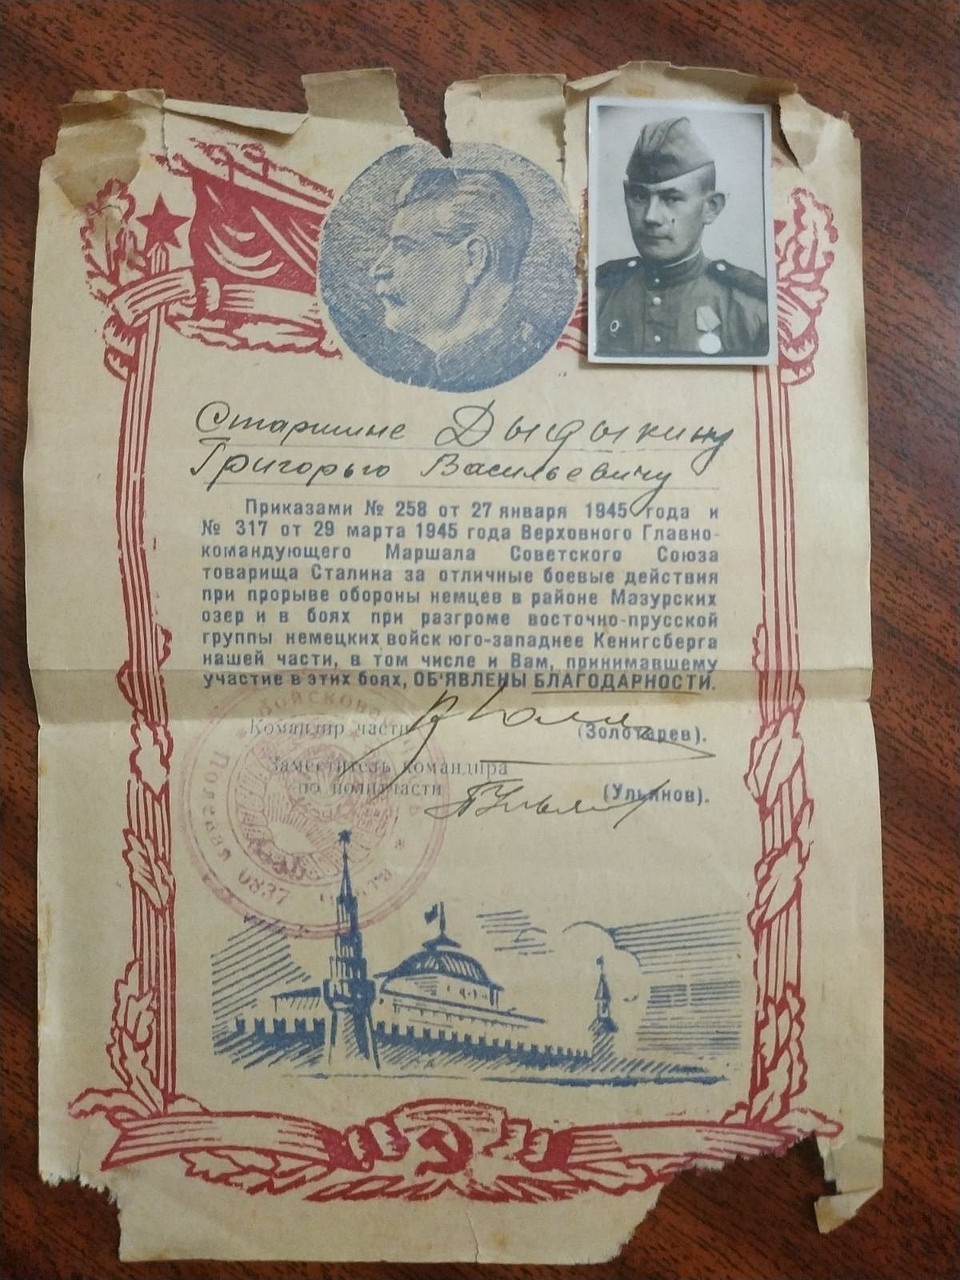 Старшине Дыдыкину
Григорью Васильевичу
Приказами № 258 от 27 января 1945 года и
№ 317 от 29 марта 1945 года Верховного Главно-
командующего Маршала Советского Союза
товарища Сталина за отличные боевые действия
при прорыве обороны немцев в районе Мазурских
озер и в боях при разгроме восточно-прусской
группы немецких войск юго-западнее Кенигсберга
нашей части, в том числе и Вам, принимавшему
участие в этих боях, ОБ'ЯВЛЕНЫ БЛАГОДАРНОСТИ.
Командир части (Золотарев).
Заместитель командира
по политчасти (Ульянов).
Войсковая часть
Полевая почта
0837